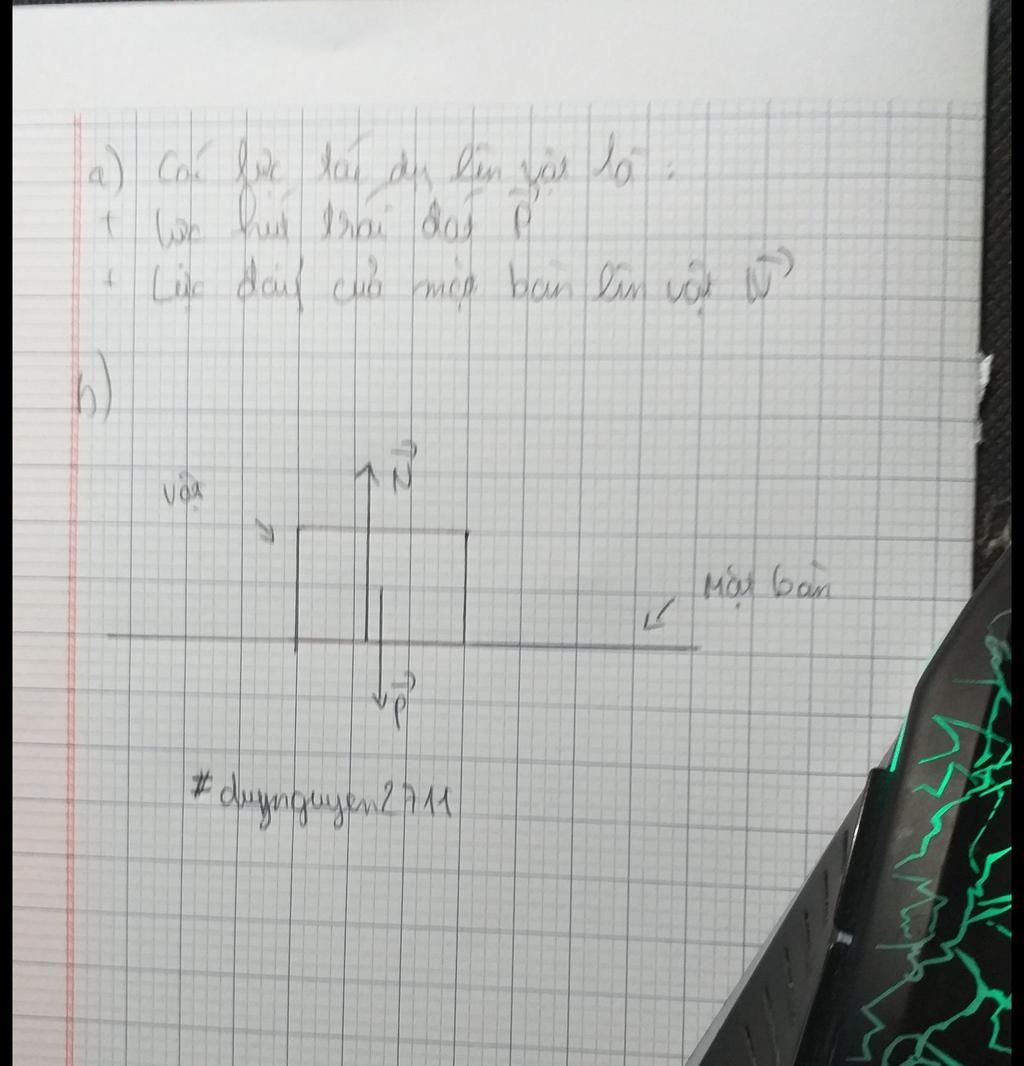 a) Các lực tác dụng lên vật là :
+ Lực hút trái đất P
+ Lực đẩy của mặt bàn lên vật N
b)
N
vật
Mặt bàn
P
#duynguyen2711